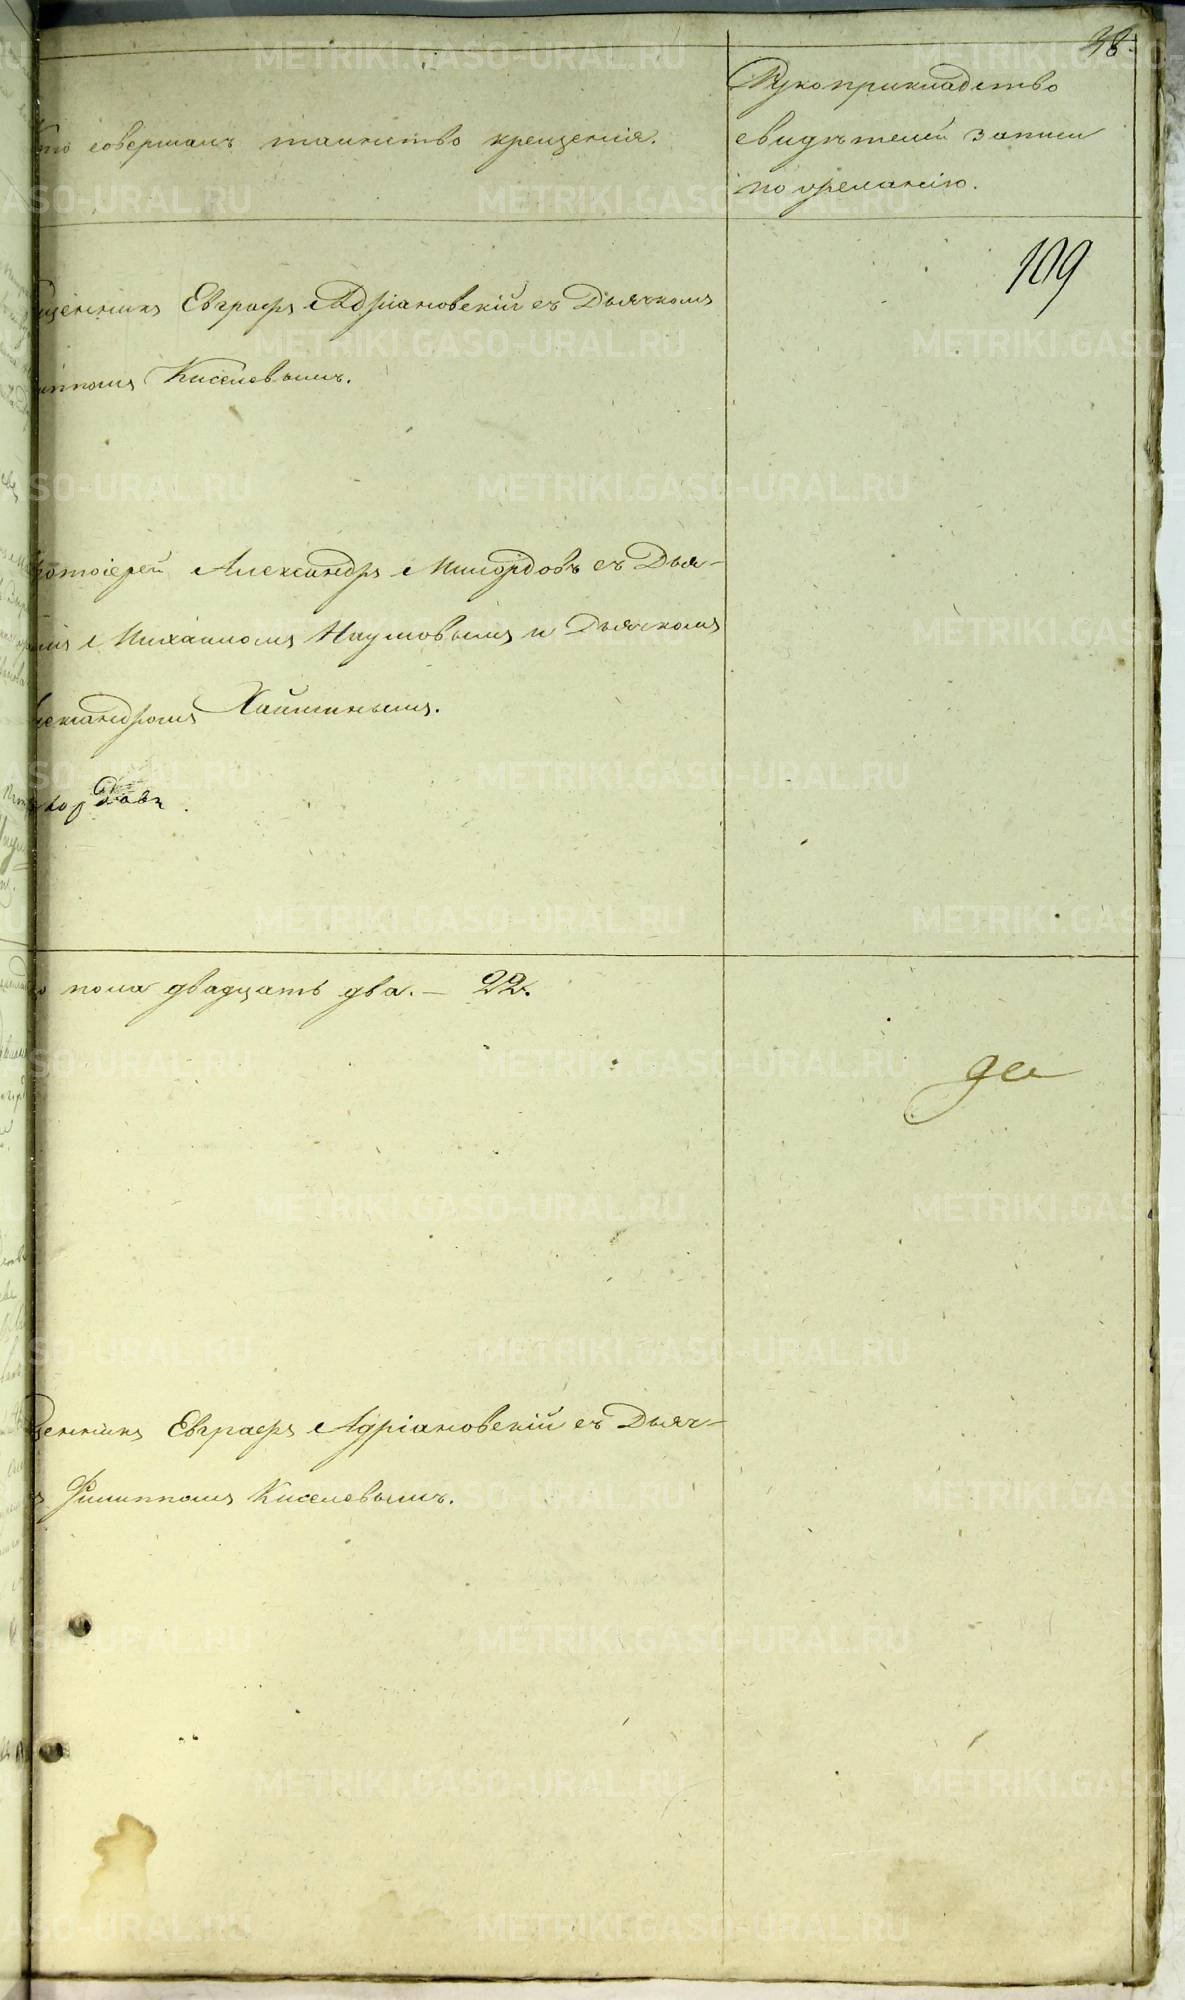 38.
Кто совершалъ таинство крещенія.
Рукоприкладство
свидѣтелей записи
по желанію.
109
щенникъ Евграфъ Адріановскій съ Дьячкомъ
иппомъ Киселевымъ.
ротоіерей Александръ Милордовъ съ Діа-
Михаиломъ Наумовымъ и Дьячкомъ
лександромъ Хайминымъ.
пола двадцать два. — 22.
да
щенникъ Евграфъ Адріановскій съ Дьяч-
Филиппомъ Киселевымъ.
METRIKI.GASO-URAL.RU